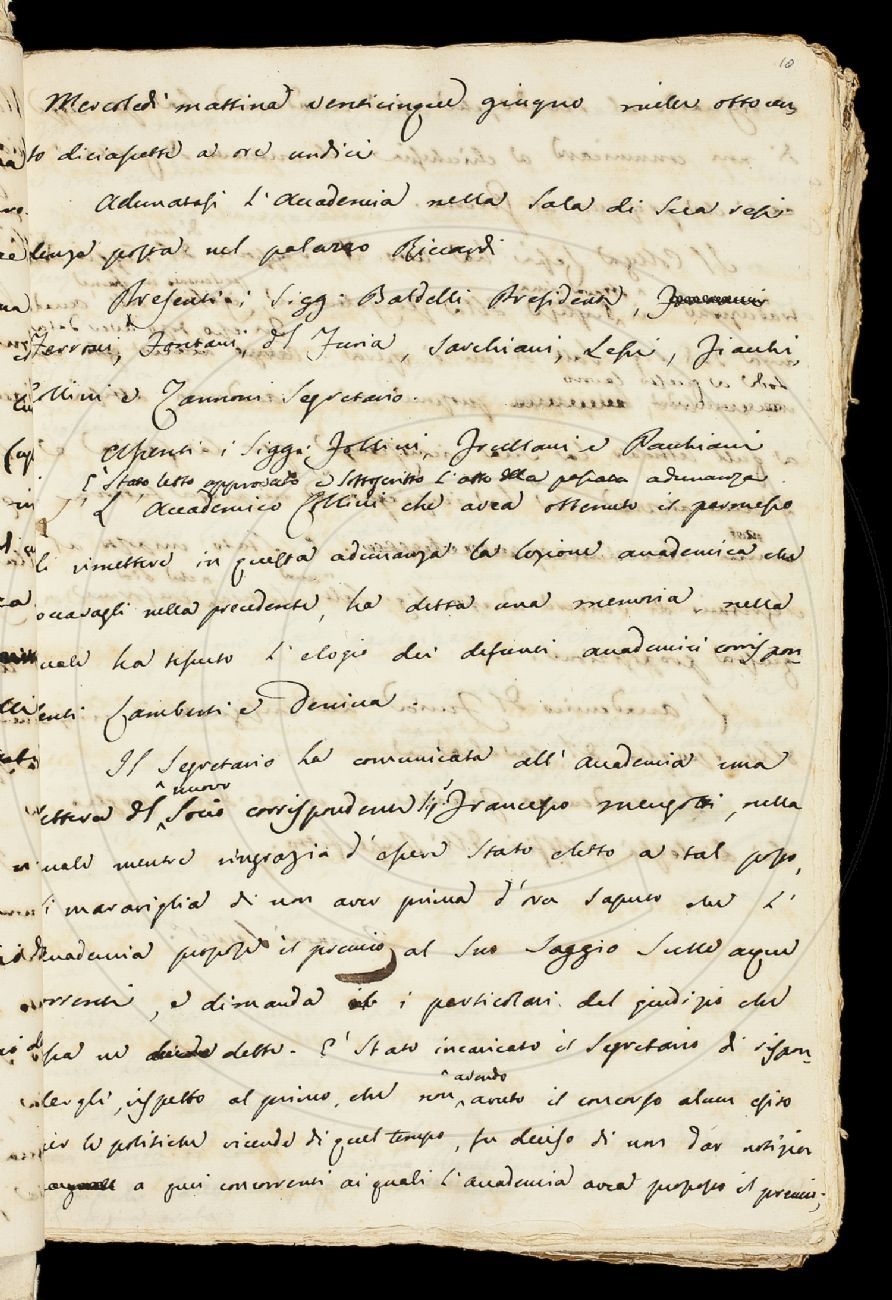 10
Mercoledì mattina venticinque giugno mille ottocen
to diciasette a ore undici
Adunatasi l'Accademia nella Sala di sua resi
denza posta nel palazzo Riccardi
Presenti i Sigg: Baldelli Presidente,
Ferroni, Fontani, del Furia, Sarchiani, Lessi, Fiacchi,
Collini e Zannoni Segretario.
Assenti i Sigg: Follini, Frullani e Pauchiani
E' Stato letto approvato e Sottoscritto l'atto della passata adunanza.
L'Accademico Collini che avea ottenuto il permesso
di rimettere in questa adunanza la lezione accademica che
toccavagli nella precedente, ha detta una memoria nella
quale ha tessuto l'elogio dei defunti accademici corrispon-
denti Lamberti e Denina.
Il Segretario ha comunicata all'Accademia una
nuovo
lettera del Socio corrispondente Sig.r Francesco Mengotti, nella
quale mentre ringrazia d'essere Stato eletto a tal posto,
si maraviglia di non aver prima d'ora saputo che l'
Accademia propose il premio al Suo Saggio Sulle acque
correnti, e dimanda i particolari del giudizio che
ne dette. E' Stato incaricato il Segretario di rispon-
dergli, rispetto al primo, che non avuto il concorso alcun esito
avendo
per le politiche vicende di quel tempo, fu deciso di non dar notizia
a quei concorrenti ai quali l'accademia avea proposto il premio;